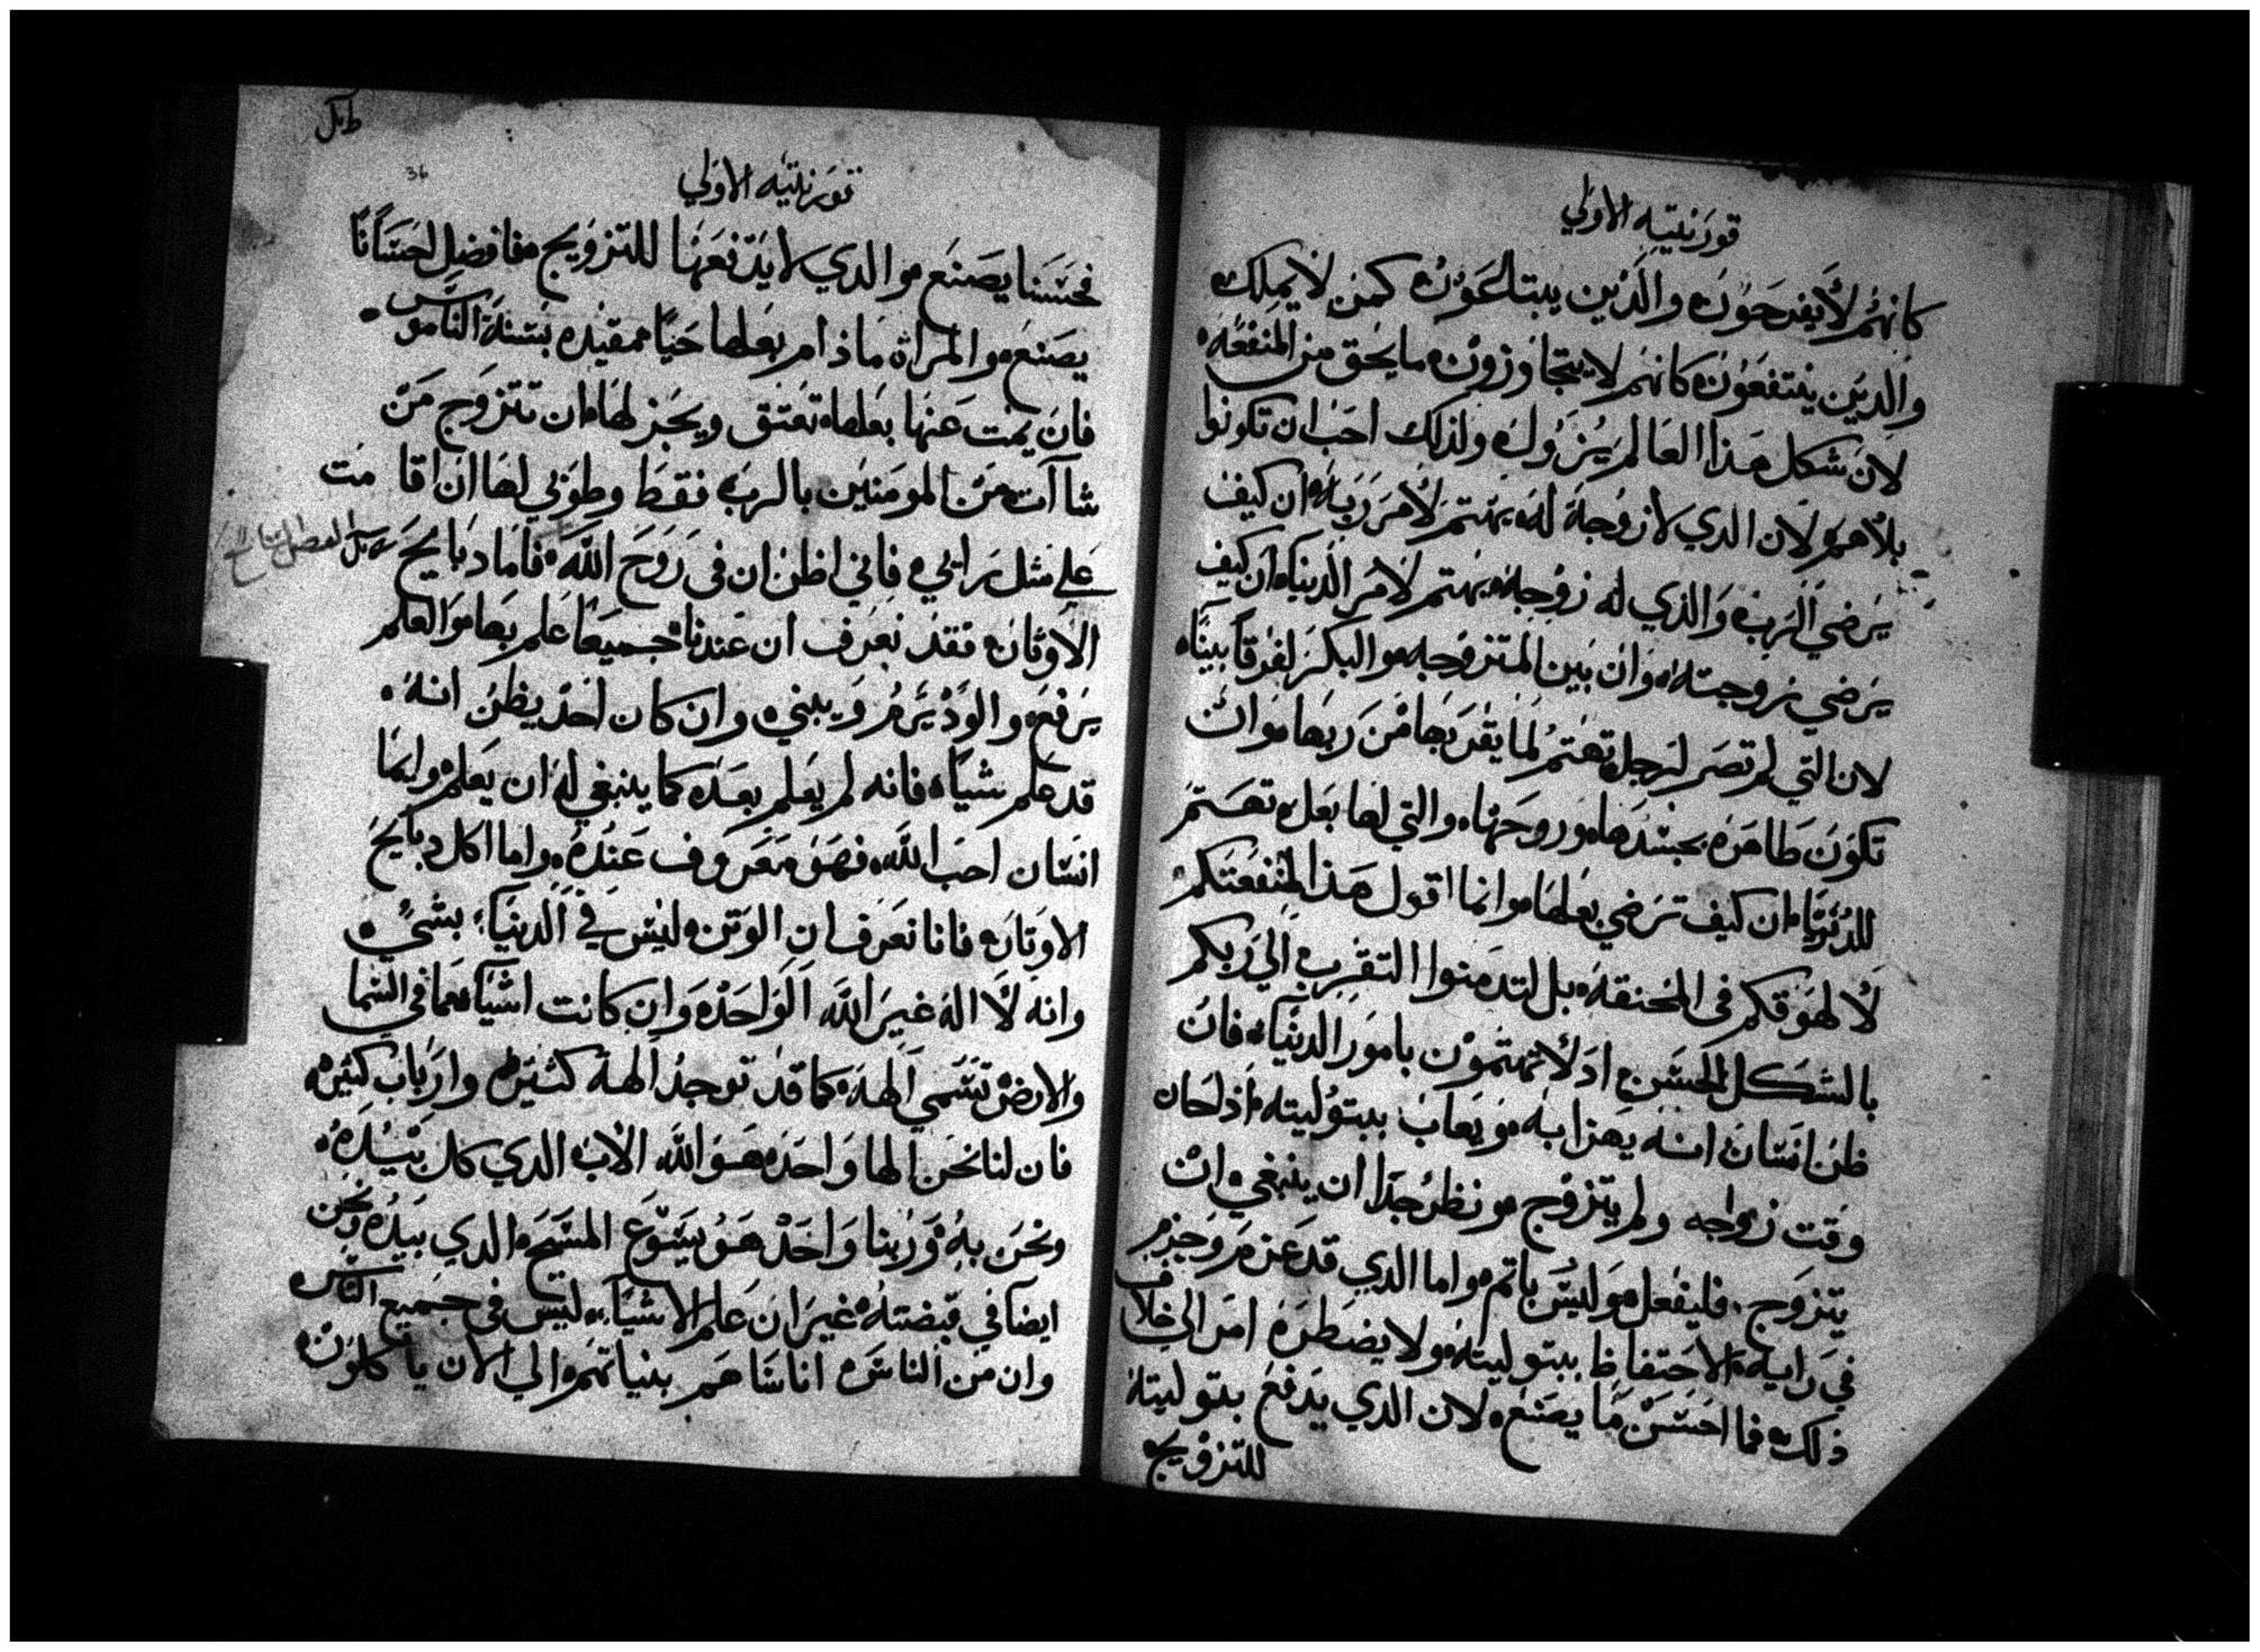 قورنتيه الاولي
كانهم لا يفرحون والذين يبتاعون كمن لا يملك
والدين ينتفعون كانهم لا يتجاوزون ما يحق من المنفعه
لان شكل هذا العالم يزول ولذلك احب ان تكونوا
بلا هم لان الدي لا زوجة له يهتم لامر ربه ان كيف
يرضي الرب والذي له زوجه يهتم لامر الدنيا ان كيف
يرضي زوجته وان بين المتزوجه والبكر لفرقا بينا
لان التي لم تصر لرجل تهتم لما يقربها من ربها وان
تكون طاهره بجسدها وروحها والتي لها بعل تهتم
للدنيا ان كيف ترضي بعلها وانما اقول هذا لمنفعتكم
لا لهوقكم في المخنقه بل لتدمنوا التقرب الي ربكم
بالشكل الحسن اد لا تهتمون بامور الدنيا فان
ظن انسان انه يهزا به ويعاب ببتوليته اذا حان
وقت زواجه ولم يتزوج ونظر جدا ان ينبغي ان
يتزوج فليفعل وليس باتم واما الدي قد عزم وجزم
في رايه الاحتفاظ ببتوليته ولا يضطره امر الي خلاف
ذلك فما احسن ما يصنع لان الدي يدفع بتوليته
للتزويج
طبل
36
قورنتيه الاولي
فحسنا يصنع والدي لا يدفعها للتزويج فافضل احسانا
يصنع والمراة ما ذام بعلها حيا مقيده بسنة الناموس
فان يمت عنها بعلها تعتق ويجز لها ان تتزوج من
شاات من المومنين بالرب فقط وطوبي لها ان اقامت
علي مثل رايي فاني اظن ان في روح الله فاما دبايح
الاوثان فقد نعرف ان عندنا جميعا علم بها والعلم
يرفع والود يرم ويبني وان كان احد يظن انه
قد علم شيا فانه لم يعلم بعد كما ينبغي له ان يعلم وايما
انسان احب الله فهو معروف عنده واما اكل دبايح
الاوتان فانا نعرف ان الوتن ليس في الدنيا بشي
وانه لا اله غير الله الواحد وان كانت اشيا مما في السما
والارض تتسمي الهه كما قد توجد الهة كثيره وارباب كثيره
فان لنا نحن الها واحد هو الله الاب الدي كل بيده
ونحن به وربنا واحد هو يسوع المسيح الدي بيده ونحن
ايضا في قبضته غير ان علم الاشيا ليس في جميع الناس
وان من الناس اناسا هم بنياتهم الي الان ياكلون